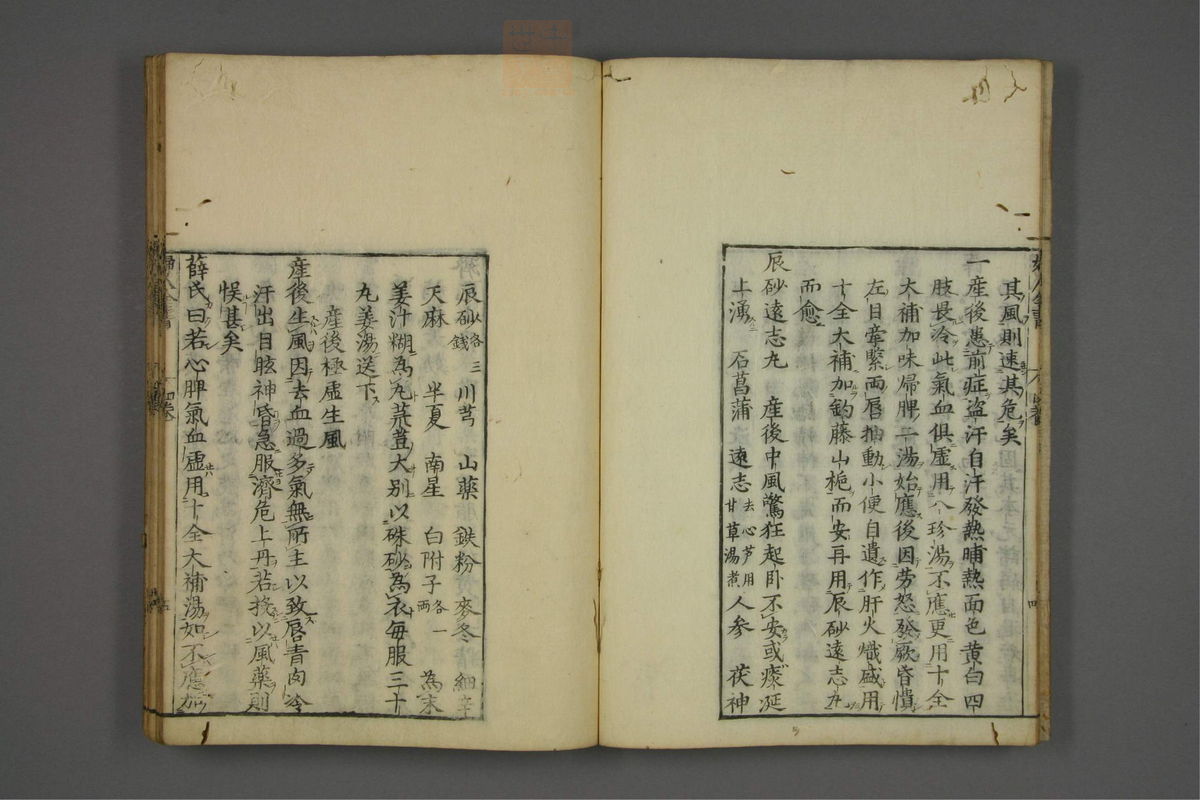 其風則速其危矣
一産後患前症盜汗自汗發熱晡熱面色黄白四
肢畏冷此氣血俱虚用八珍湯不應更用十全
大補加味歸脾二湯始應後因劳怒發厥昏憒
左目牽緊兩唇抽動小便自遺作肝火熾盛用
十全大補加鈎藤山梔而安再用辰砂遠志丸
而愈
辰砂遠志丸 産後中風驚狂起卧不安或痰涎
上湧 石菖蒲 遠志去心芦用甘草湯煮 人参 茯神
辰砂各三錢 川芎 山藥 鉄粉 麥冬 細辛
天麻 半夏 南星 白附子各一兩 為末
姜汁糊為丸菉荳大別以硃砂為衣毎服三十
丸姜湯送下
産後極虚生風
産後生風因去血過多氣無所主以致唇青肉冷
汗出目眩神昏急服濟危上丹若投以風藥則
悞甚矣
薛氏曰若心脾氣血虚用十全大補湯如不應加